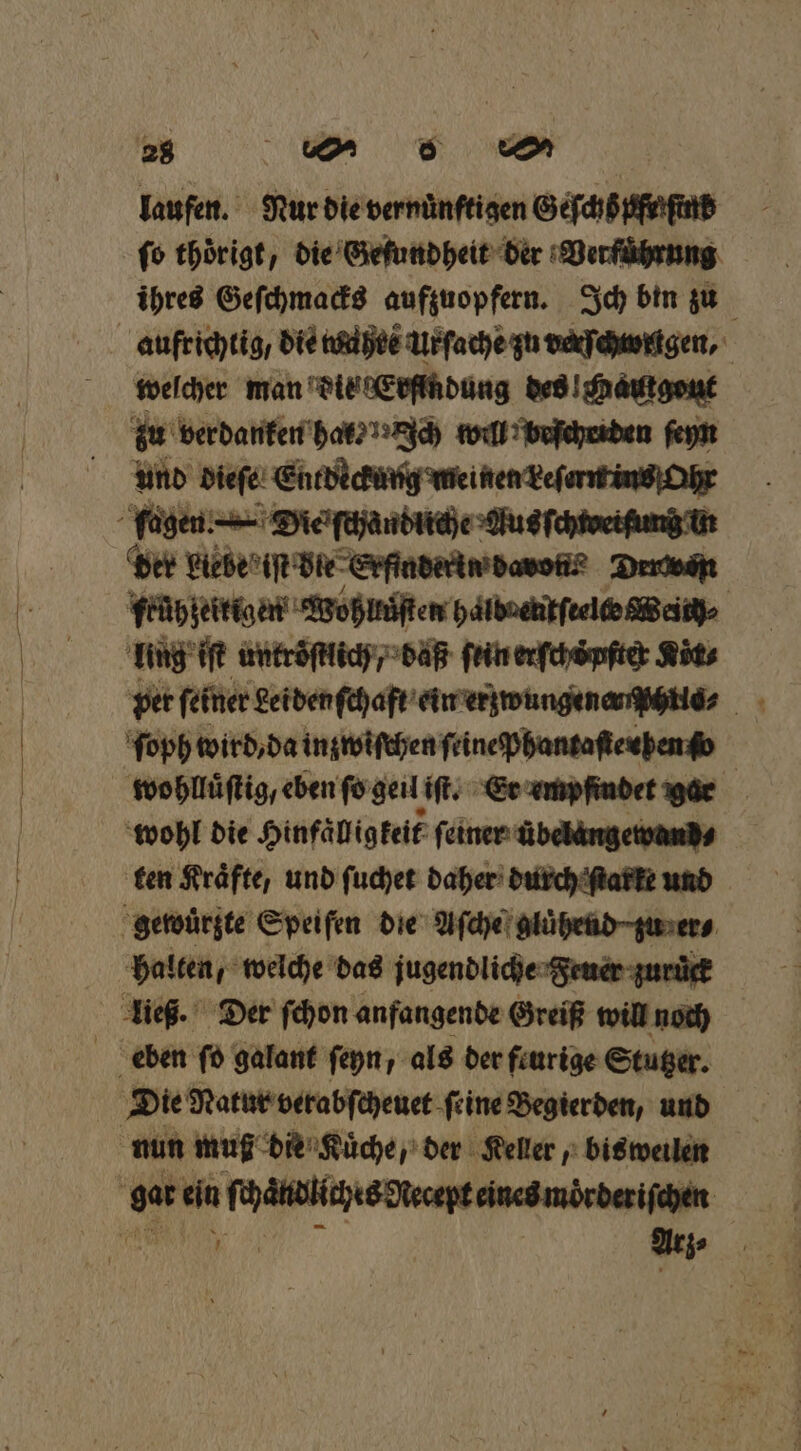 28 o
laufen. Nur die vernuͤnftigen Geſchoͤpfe ſind
ſo thoͤrigt, die Geſundheit der Verfuͤhrung
ihres Geſchmacks aufzuopfern. Ich bin zu
aufrichtig, die wahre Urſache zu verſchweigen,
welcher man die Erfindung des Hautgout
zu verdanken hat. Ich will beſcheiden ſeyn
und dieſe Entdeckung meinen Leſern ins Ohr
ſagen. — Die ſchaͤndliche Ausſchweifung in
der Liebe iſt die Erfinderin davon. Der von
fruͤhzeitigen Wohlluͤſten halb entſeelte Weich⸗
ling iſt untroͤſtlich, daß ſein erſchoͤpfter Koͤr⸗
per ſeiner Leidenſchaft ein erzwungener Philo⸗
ſoph wird, da inzwiſchen ſeine Phantaſie eben ſo
wohlluͤſtig, eben ſo geil iſt. Er empfindet gar
wohl die Hinfaͤlligkeit ſeiner uͤbelangewand⸗
ten Kraͤfte, und ſuchet daher durch ſtarke und
gewuͤrzte Speiſen die Aſche gluͤhend zu er⸗
halten, welche das jugendliche Feuer zuruͤck
ließ. Der ſchon anfangende Greiß will noch
eben ſo galant ſeyn, als der feurige Stutzer.
Die Natur verabſcheuet ſeine Begierden, und
nun muß die Kuͤche, der Keller, bisweilen
gar ein ſchaͤndliches Recept eines moͤrderiſchen
Arz⸗